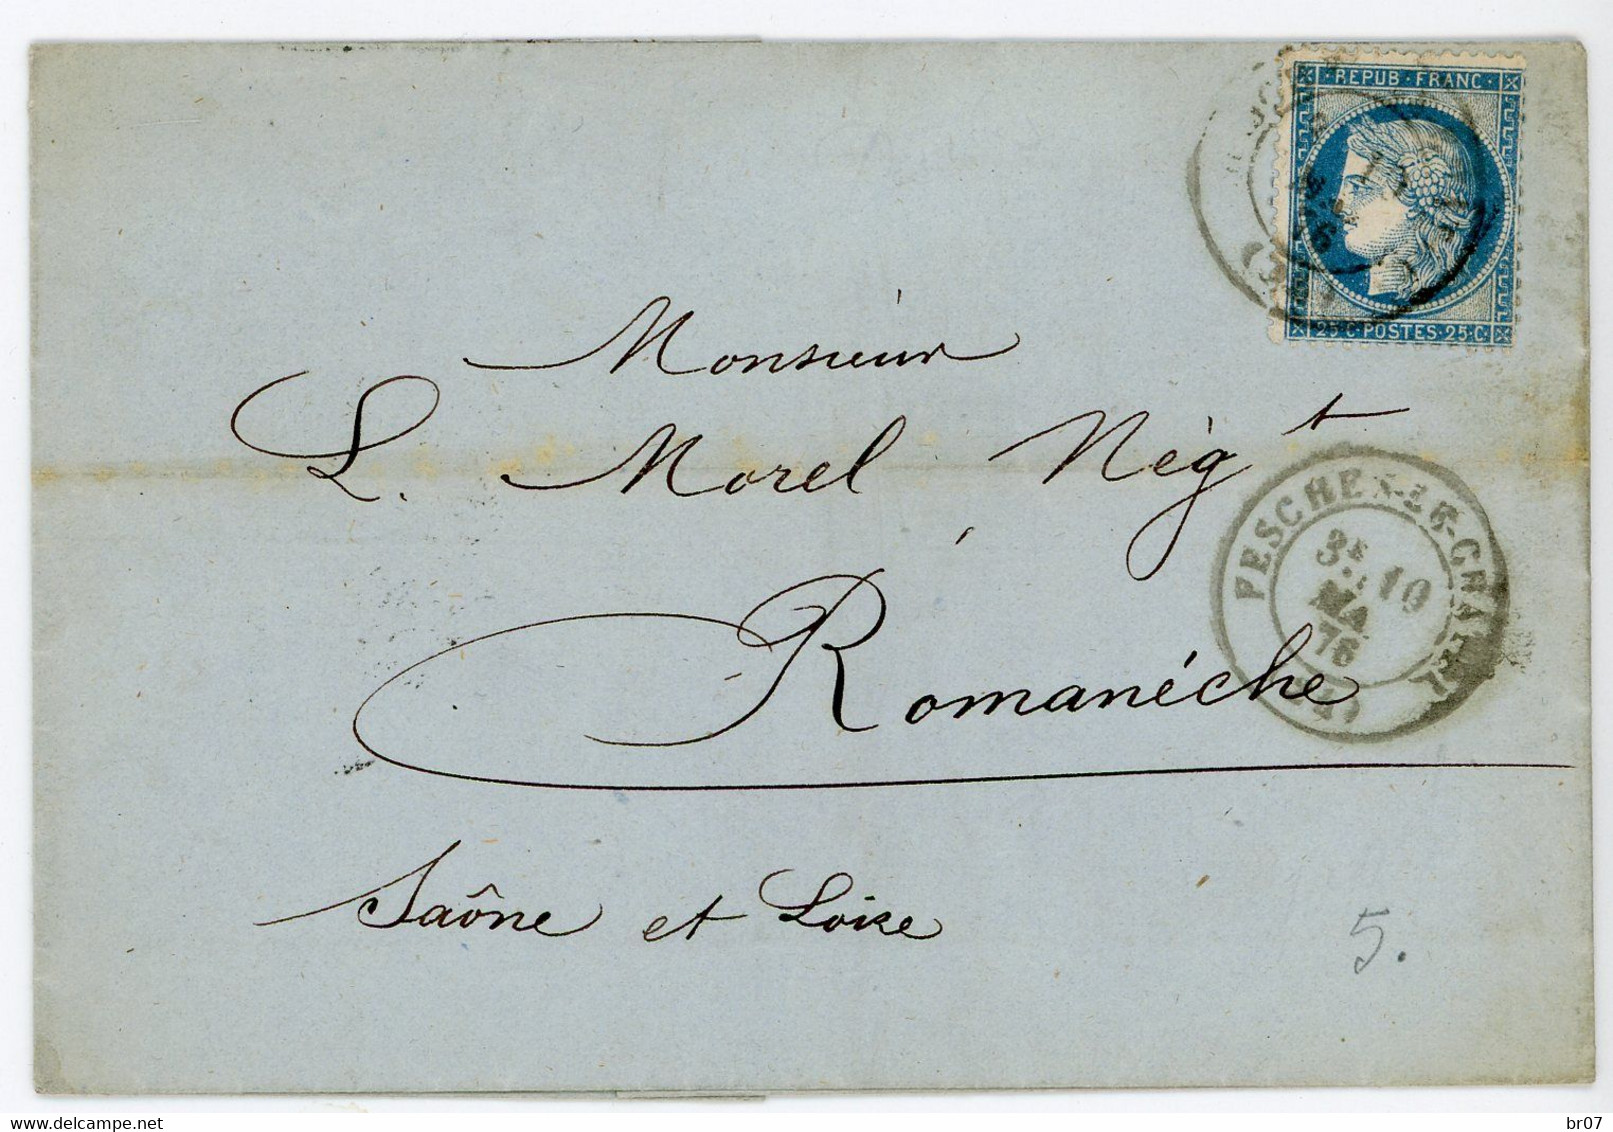 REPUB · FRANC
25 · C · POSTES · 25 · C
Monsieur
L. Morel Négt
Romanéche
Saône et Loire
FESCHES-LE-CHATEL
3E
10
MA
76
5.
delcampe.net
br07